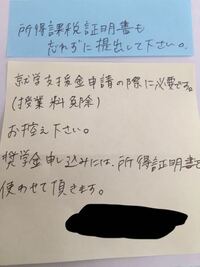 所得課税証明書も
忘れずに提出して下さい。
就学支援金申請の際に必要です。
(授業料免除)
お控え下さい。
奨学金申し込みには、所得証明書を
使わせて頂きます。